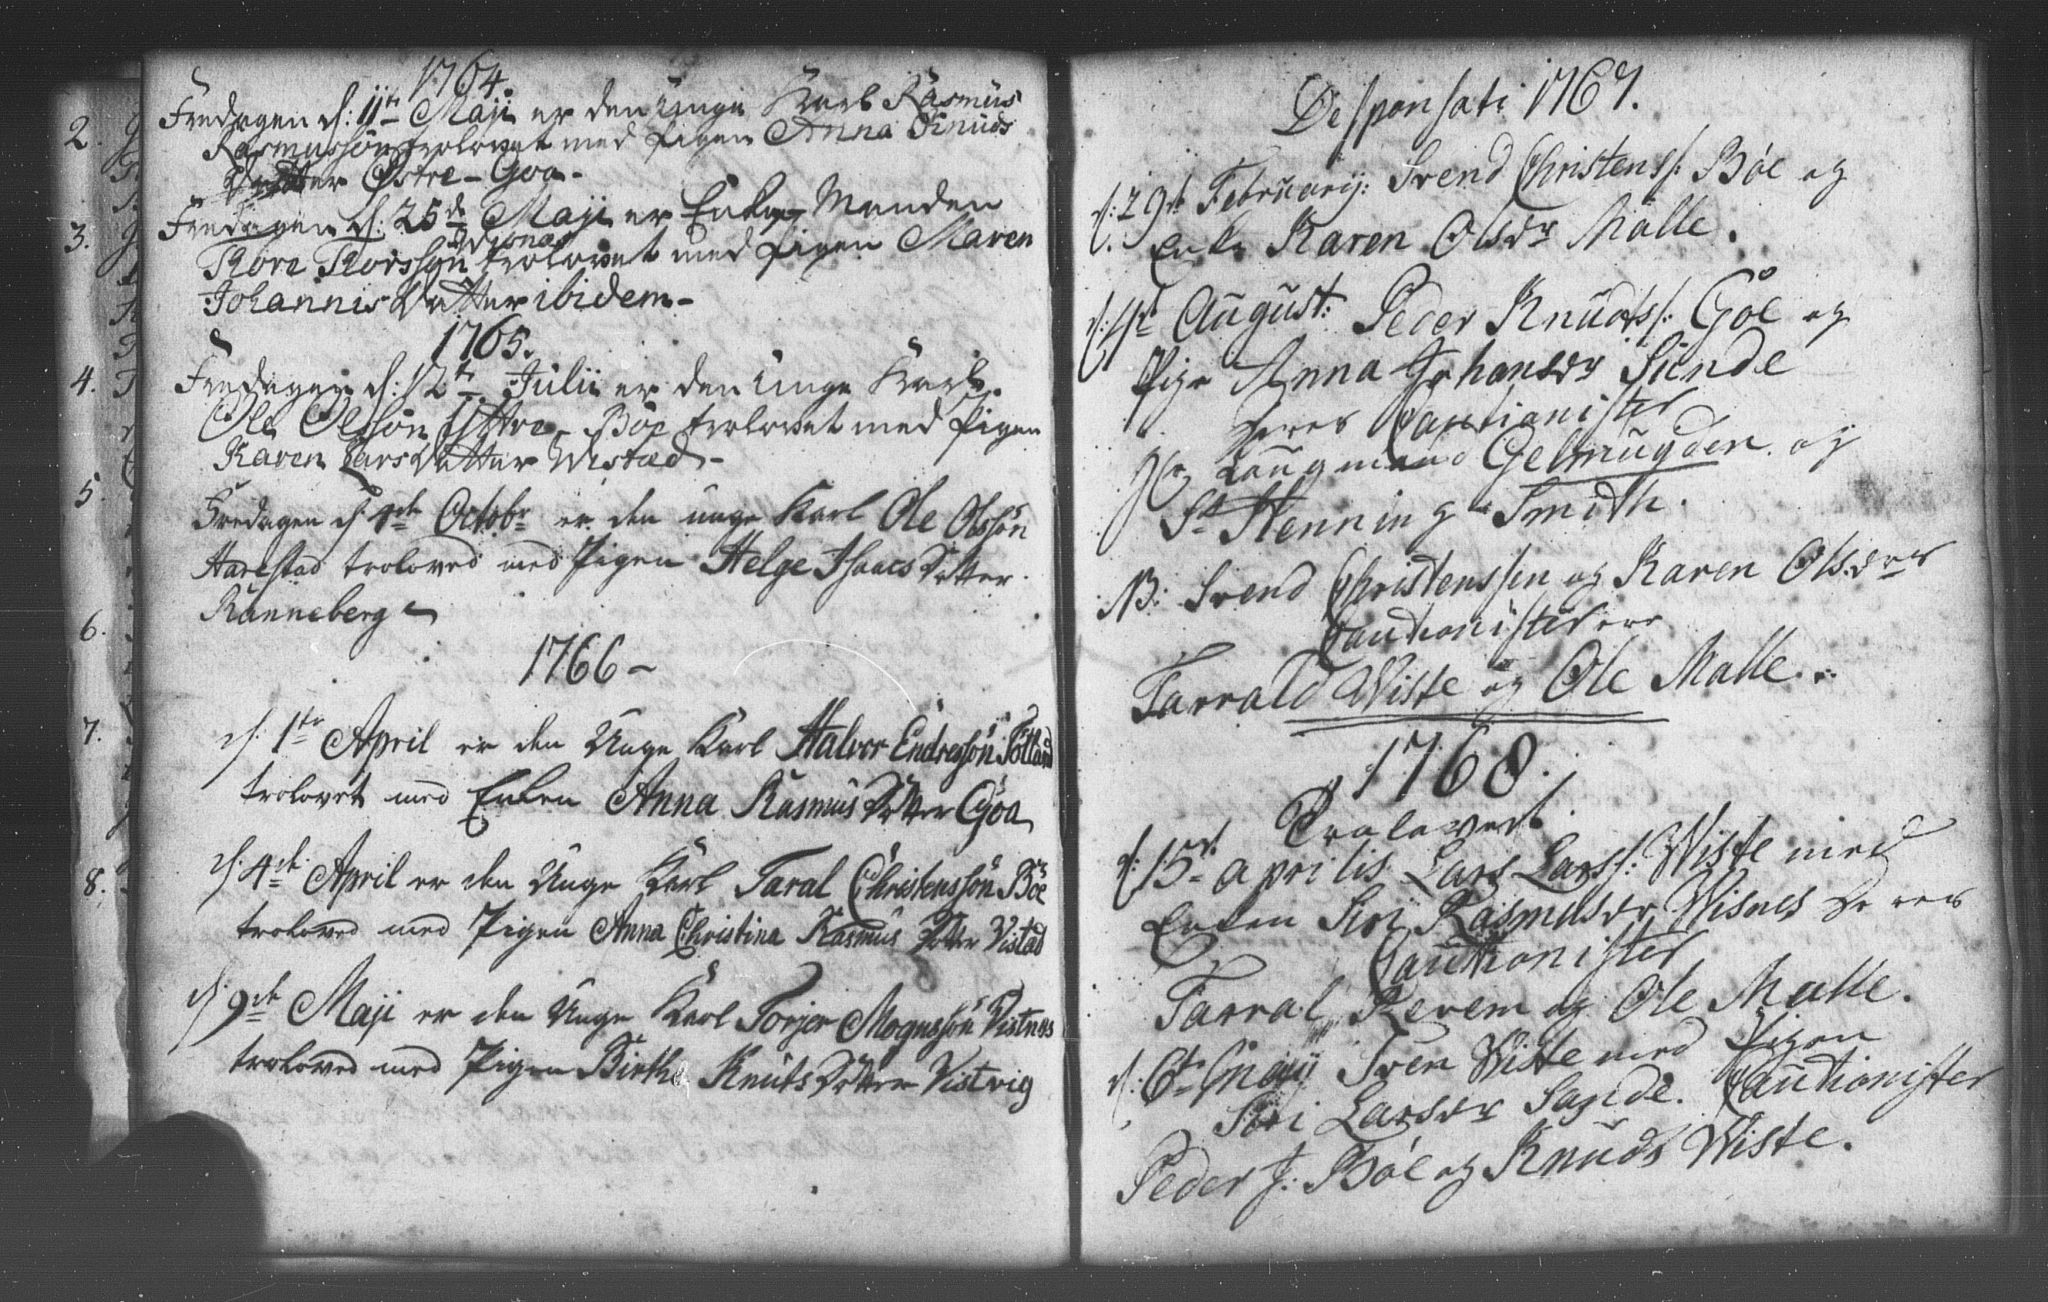 1764.
Fredagen d: 11te Maji er den Unge Karl Rasmus
Rasmussøn trolovet med Pigen Anna Knuds
Datter Østre-Goa-
Fredagen d: 25de Maji er Enke Manden
Tore Torssøn trolovet med Pigen Maren
Johannis Datter ibidem-
1765.
Fredagen d: 12te Julii er den Unge Karl
Ole Olssøn Yttre-Bøe trolovet med Pigen
Karen Lars Datter Wistad-
Fredagen d. 4de Octobr er den unge Karl Ole Olssøn
Harestad troloved med Pigen Helge Isaacs Dotter
Ranneberg
1766-
d. 1te April er den Unge Karl Halvor Endressøn
trolovet med Enken Anna Rasmus Dotter Goa
d. 4de April er den Unge Karl Taral Christenssøn Böe
troloved med Pigen Anna Christina Rasmus Dotter Vistad
d. 9de Maji er den Unge Karl Torjer Mognssøn Vistnes
troloved med Pigen Birthe Knuts Dotter Vistvig
2.
3.
4.
5.
6.
7.
8.
Desponsati 1767.
d: 29de Februarij: Svend Christenss: Bøe og
Enke Karen Olsdr Malle.
d: 4de August: Peder Knudss: Goe og
Pige Anna Johansdr Sunde
Deres Cautionister
Hr Laugmand Gelmuyden og
Sr Henning Smidth.
NB: Svend Christenssen og Karen Olsdrs
Cautionister ere
Tarrald Wiste og Ole Malle.
1768.
Trolovet.
d: 15de Aprilis Lars Larss: Wiste med
Enken Siri Rasmusdr Wisnes Deres
Cautionister
Tarral Revem og Ole Malle.
d: 6te Maij Sven Wiste med Pigen
Siri Larsdr Sande. Cautionister
Peder J: Bøe og Knuds Wiste.